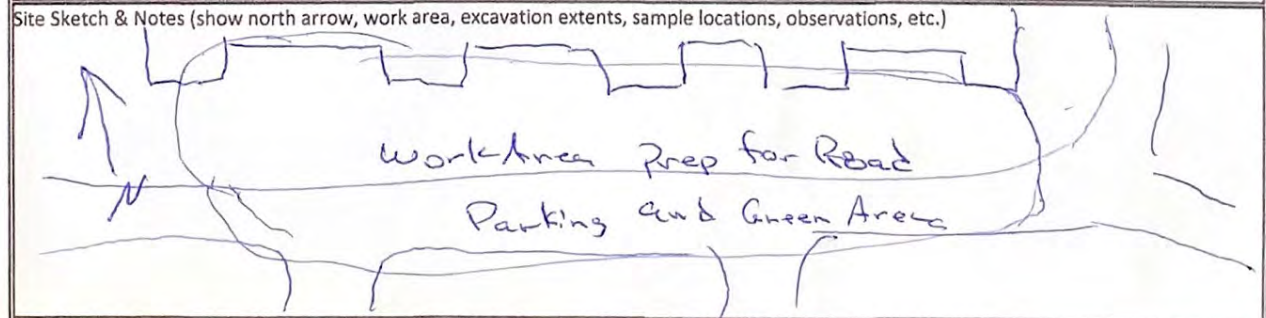 Site Sketch & Notes (show north arrow, work area, excavation extents, sample locations, observations, etc.)
Work Area Prep for Road
N
Parking and Green Areas